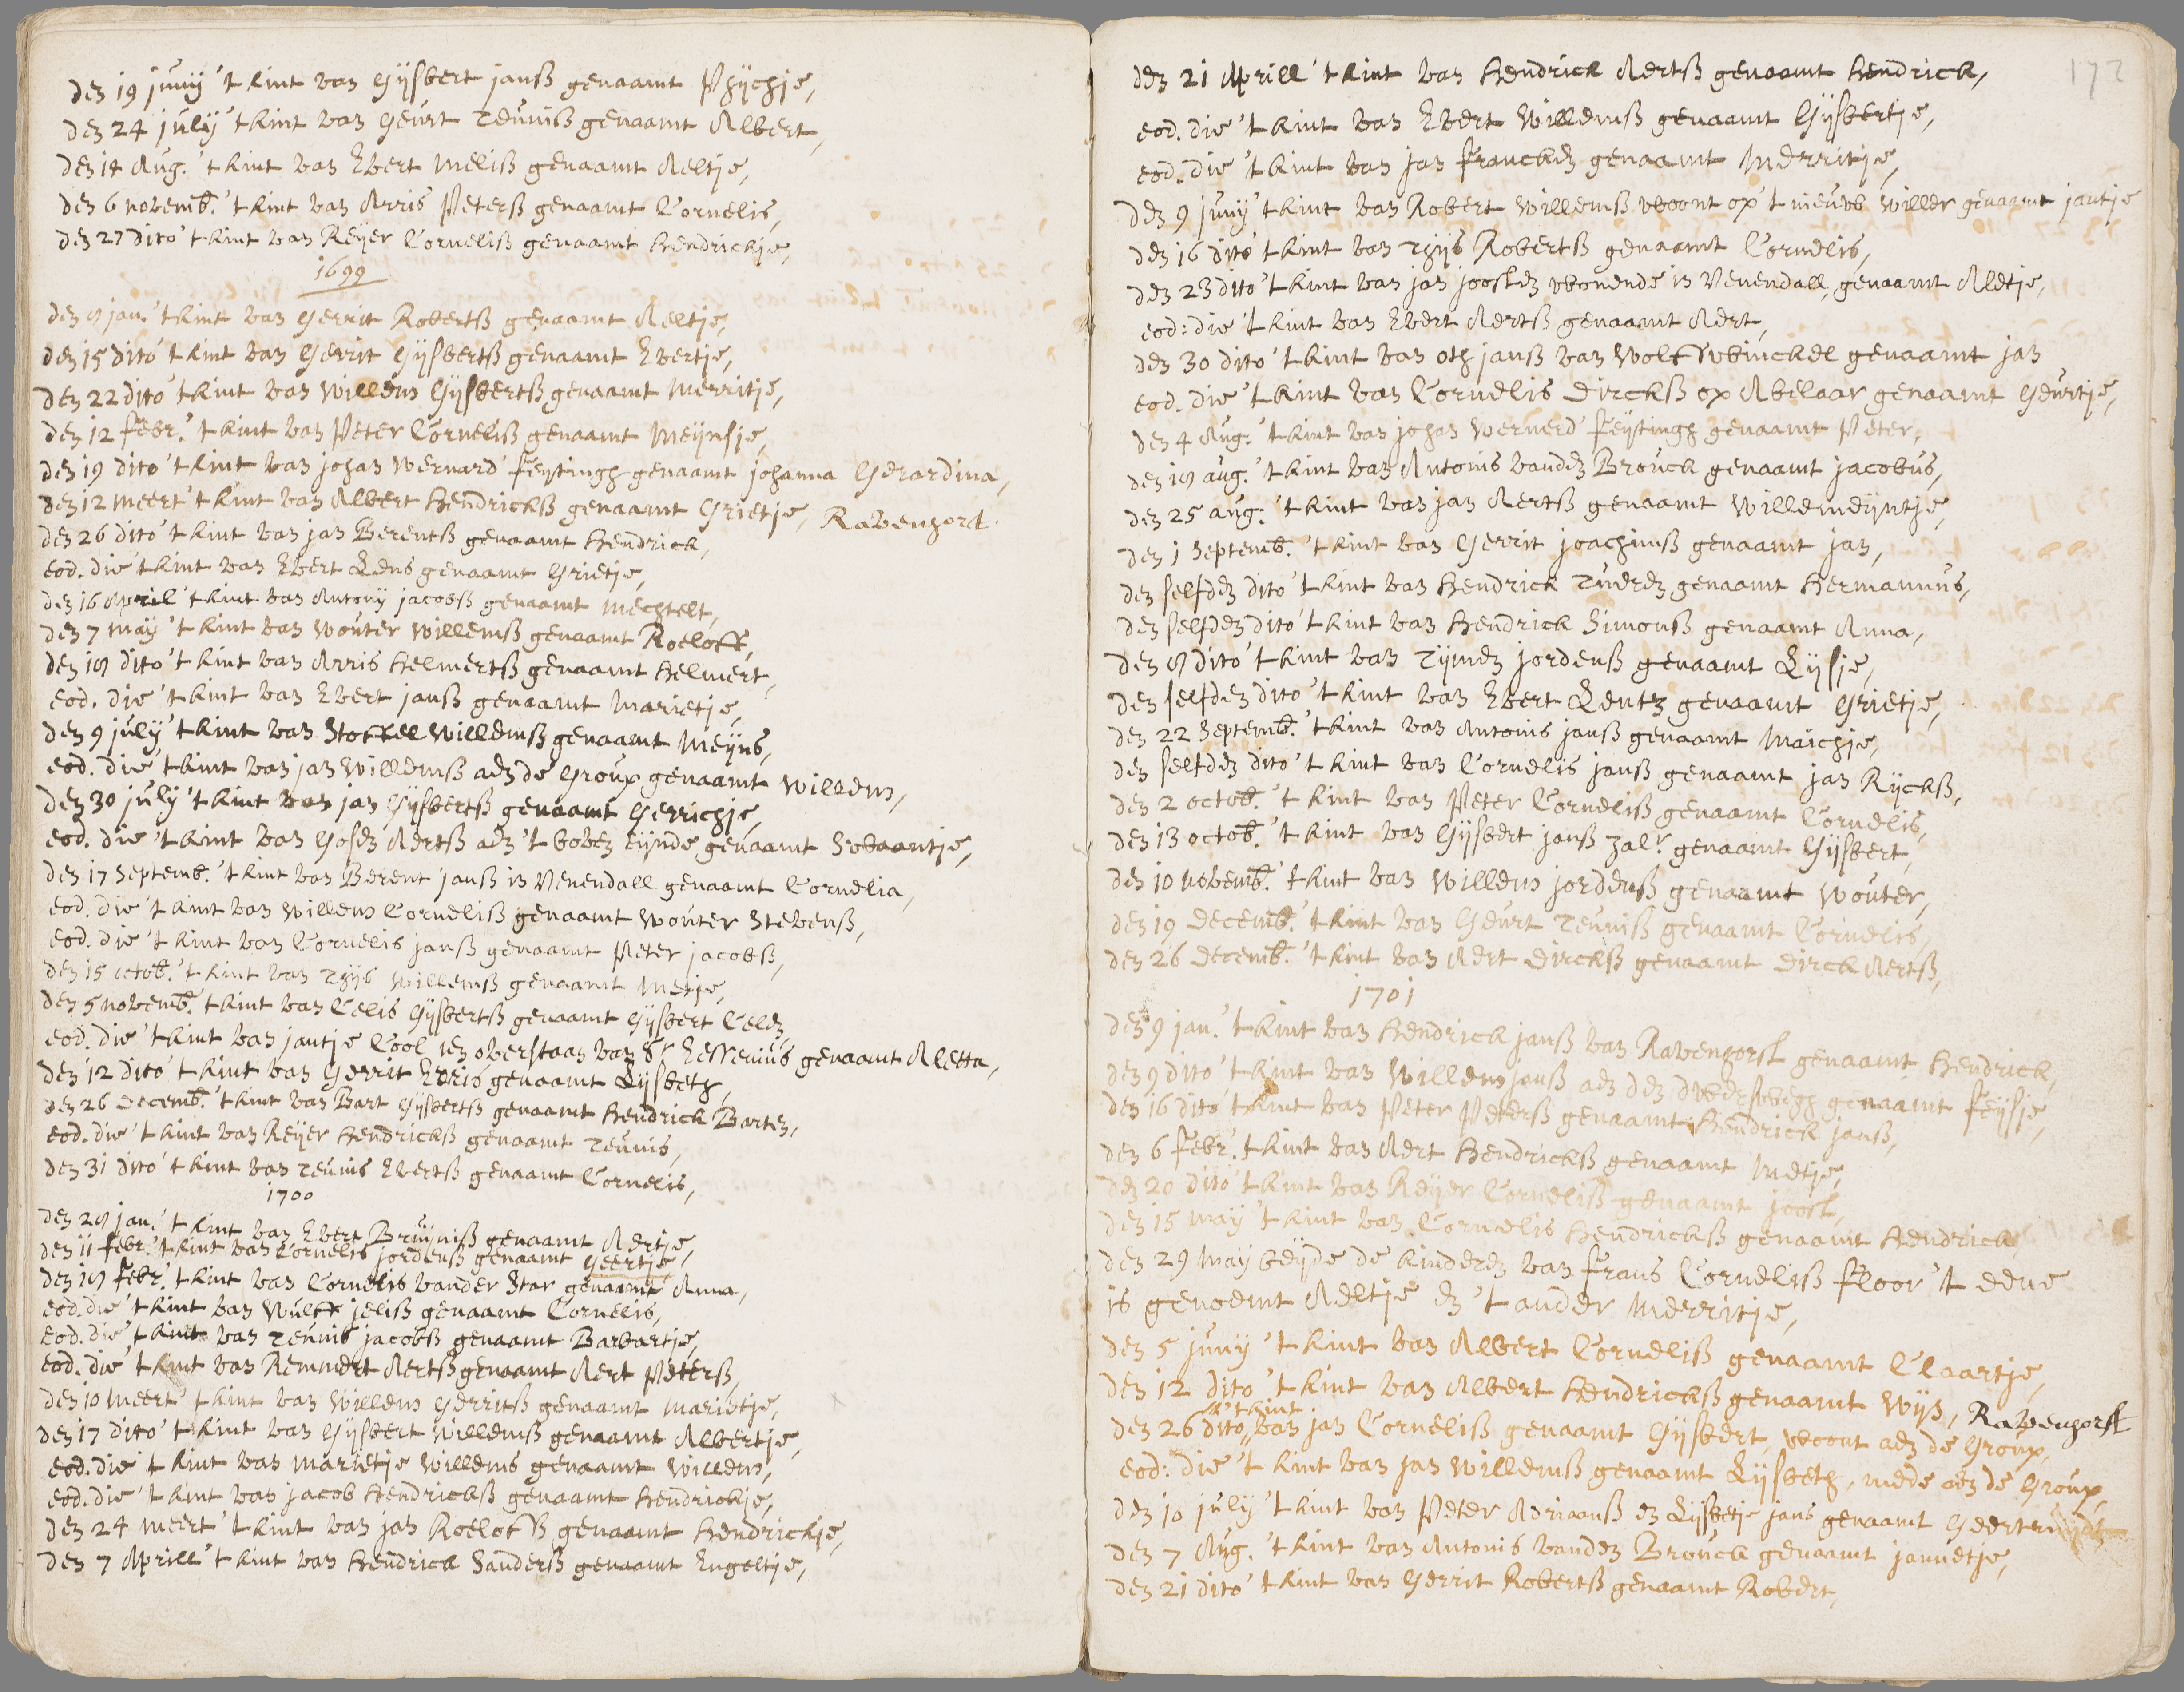 den 19 junij 't kint van Gijsbert janß genaamt Thijchje,
den 24 julij 't kint van Geurt Teunisß genaamt Albert,
den 14 Aug. 't kint van Evert Melisß genaamt Aeltje,
den 6 novemb. 't kint van Arris Petersß genaamt Cornelis,
den 27 dito 't kint van Reijer Cornelisß genaamt Hendrickje,
1699
den 8 jan. 't kint van Gerrit Robertsß genaamt Aeltje,
den 15 dito 't kint van Gerrit Gijsbertsß genaamt Evertje,
den 22 dito 't kint van Willem Gijsbertsß genaamt Merritje,
den 12 febr. 't kint van Peter Cornelisß genaamt Meijnsje,
den 19 dito 't kint van johan Wernard Feijtingh genaamt johanna Gerardina,
den 12 meert 't kint van Albert Hendricksß genaamt Grietje, Ravenhorst.
den 26 dito 't kint van jan Berentsß genaamt Hendrick,
eod. die 't kint van Evert Lens genaamt Grietje,
den 16 April 't kint van Antonij jacobsß genaamt Mechtelt,
den 7 maij 't kint van Wouter Willemsß genaamt Roeloff,
den 18 dito 't kint van Arris Helmertsß genaamt Helmert,
eod. die 't kint van Evert janß genaamt Marietje,
den 9 julij 't kint van Stoffel Willemsß genaamt Meijns,
eod. die 't kint van jan Willemsß aen de Group genaamt Willem,
den 30 julij 't kint van jan Gijsbertsß genaamt Gerrichje,
eod. die 't kint van Gosen Aertsß aen 't boven eijnde genaamt Swaantje,
den 17 Septemb. 't kint van Berent janß in Venendall genaamt Cornelia,
eod. die 't kint van Willem Cornelisß genaamt Wouter Stevensß,
eod. die 't kint van Cornelis janß genaamt Peter jacobsß,
den 15 octob. 't kint van Thijs Willemsß genaamt Metje,
den 5 novemb. 't kint van Celis Gijsbertsß genaamt Gijsbert Celen
eod. die 't kint van jantje Cool ten overstaan van Sr Essenius genaamt Aletta,
den 12 dito 't kint van Gerrit Evris genaamt Lijsbeth,
den 26 Decemb. 't kint van Bart Gijsbertsß genaamt Hendrick Barten,
eod. die 't kint van Reijer Hendricksß genaamt Teunis,
den 31 dito 't kint van Teunis Evertsß genaamt Cornelis,
1700
den 28 jan. 't kint van Evert Bruijnisß genaamt Aertje,
den 11 febr. 't kint van Cornelis jordensß genaamt Geertje,
den 18 febr. 't kint van Cornelis vander Star genaamt Anna,
eod. die 't kint van Wulff jelisß genaamt Cornelis,
eod. die 't kint van Teunis jacobsß genaamt Barbartje,
eod. die 't kint van Remmert Aertsß genaamt Aert Petersß,
den 10 meert 't kint van Willem Gerritsß genaamt Marietje,
den 17 dito 't kint van Gijsbert Willemsß genaamt Albertje,
eod. die 't kint van Marietje Willems genaamt Willem,
eod. die 't kint van jacob Hendricksß genaamt Hendrickje,
den 24 meert 't kint van jan Roelofsß genaamt Hendrickje,
den 7 Aprill 't kint van Hendrick Sandersß genaamt Engeltje,
172
den 21 Aprill 't kint van Hendrick Aertsß genaamt Hendrick,
eod. die 't kint van Evert Willemsß genaamt Gijsbertje,
eod. die 't kint van jan Francken genaamt Merritje,
den 9 junij 't kint van Robert Willemsß woont op 't nieuw Willer genaamt jantje
den 16 dito 't kint van Thijs Robertsß genaamt Cornelis,
den 23 dito 't kint van jan joosten wonende in Venendall, genaamt Aletje,
eod: die 't kint van Evert Aertsß genaamt Aert,
den 30 dito 't kint van oth janß van Wolffwinckel genaamt jan
eod. die 't kint van Cornelis Dircksß op Abelaar genaamt Geurtje,
den 4 Aug. 't kint van johan Wernerd Feijtingh genaamt Peter,
den 18 aug. 't kint van Antonis vanden Brouck genaamt jacobus,
den 25 aug. 't kint van jan Aertsß genaamt Willemeijntje,
den 1 Septemb. 't kint van Gerrit joachimsß genaamt jan,
den selfden dito 't kint van Hendrick Tueren genaamt Hermannus,
den selfden dito 't kint van Hendrick Simonsß genaamt Anna,
den 8 dito 't kint van Tijmen jordensß genaamt Lijsje,
den selfden dito 't kint van Evert Lentz genaamt Grietje,
den 22 Septemb. 't kint van Antonis janß genaamt Maichje,
den selfden dito 't kint van Cornelis janß genaamt jan Rijcksß,
den 2 octob. 't kint van Peter Cornelisß genaamt Cornelis,
den 13 octob. 't kint van Gijsbert janß zalr. genaamt Gijsbert,
den 10 novemb. 't kint van Willem jordensß genaamt Wouter,
den 19 Decemb. 't kint van Geurt Teunisß genaamt Cornelis,
den 26 Decemb. 't kint van Aert Dircksß genaamt Dirck Aertsß,
1701
den 9 jan. 't kint van Hendrick janß van Ravenhorst genaamt Hendrick,
den 9 dito 't kint van Willem janß aen den dwersweg genaamt Feijsje,
den 16 dito 't kint van Peter Petersß genaamt Hendrick janß,
den 6 febr. 't kint van Aert Hendricksß genaamt Metje,
den 20 dito 't kint van Reijer Cornelisß genaamt joost,
den 15 maij 't kint van Cornelis Hendricksß genaamt Hendrick
den 29 maij beijde de kinderen van Frans Cornelisß Floor 't eene
is genoemt Aeltje en 't ander Merritje,
den 5 junij 't kint van Albert Cornelisß genaamt Claartje,
den 12 dito 't kint van Albert Hendricksß genaamt Wijs, Ravenhorst
den 26 dito 't kint van jan Cornelisß genaamt Gijsbert, woont aen de Group,
eod: die 't kint van jan Willemsß genaamt Lijsbeth, mede aen de Group,
den 10 julij 't kint van Peter Adriaansß en Lijsbetje jans genaamt
den 7 Aug. 't kint van Antonis vanden Brouck genaamt jannetje,
den 21 dito 't kint van Gerrit Robertsß genaamt Robert,